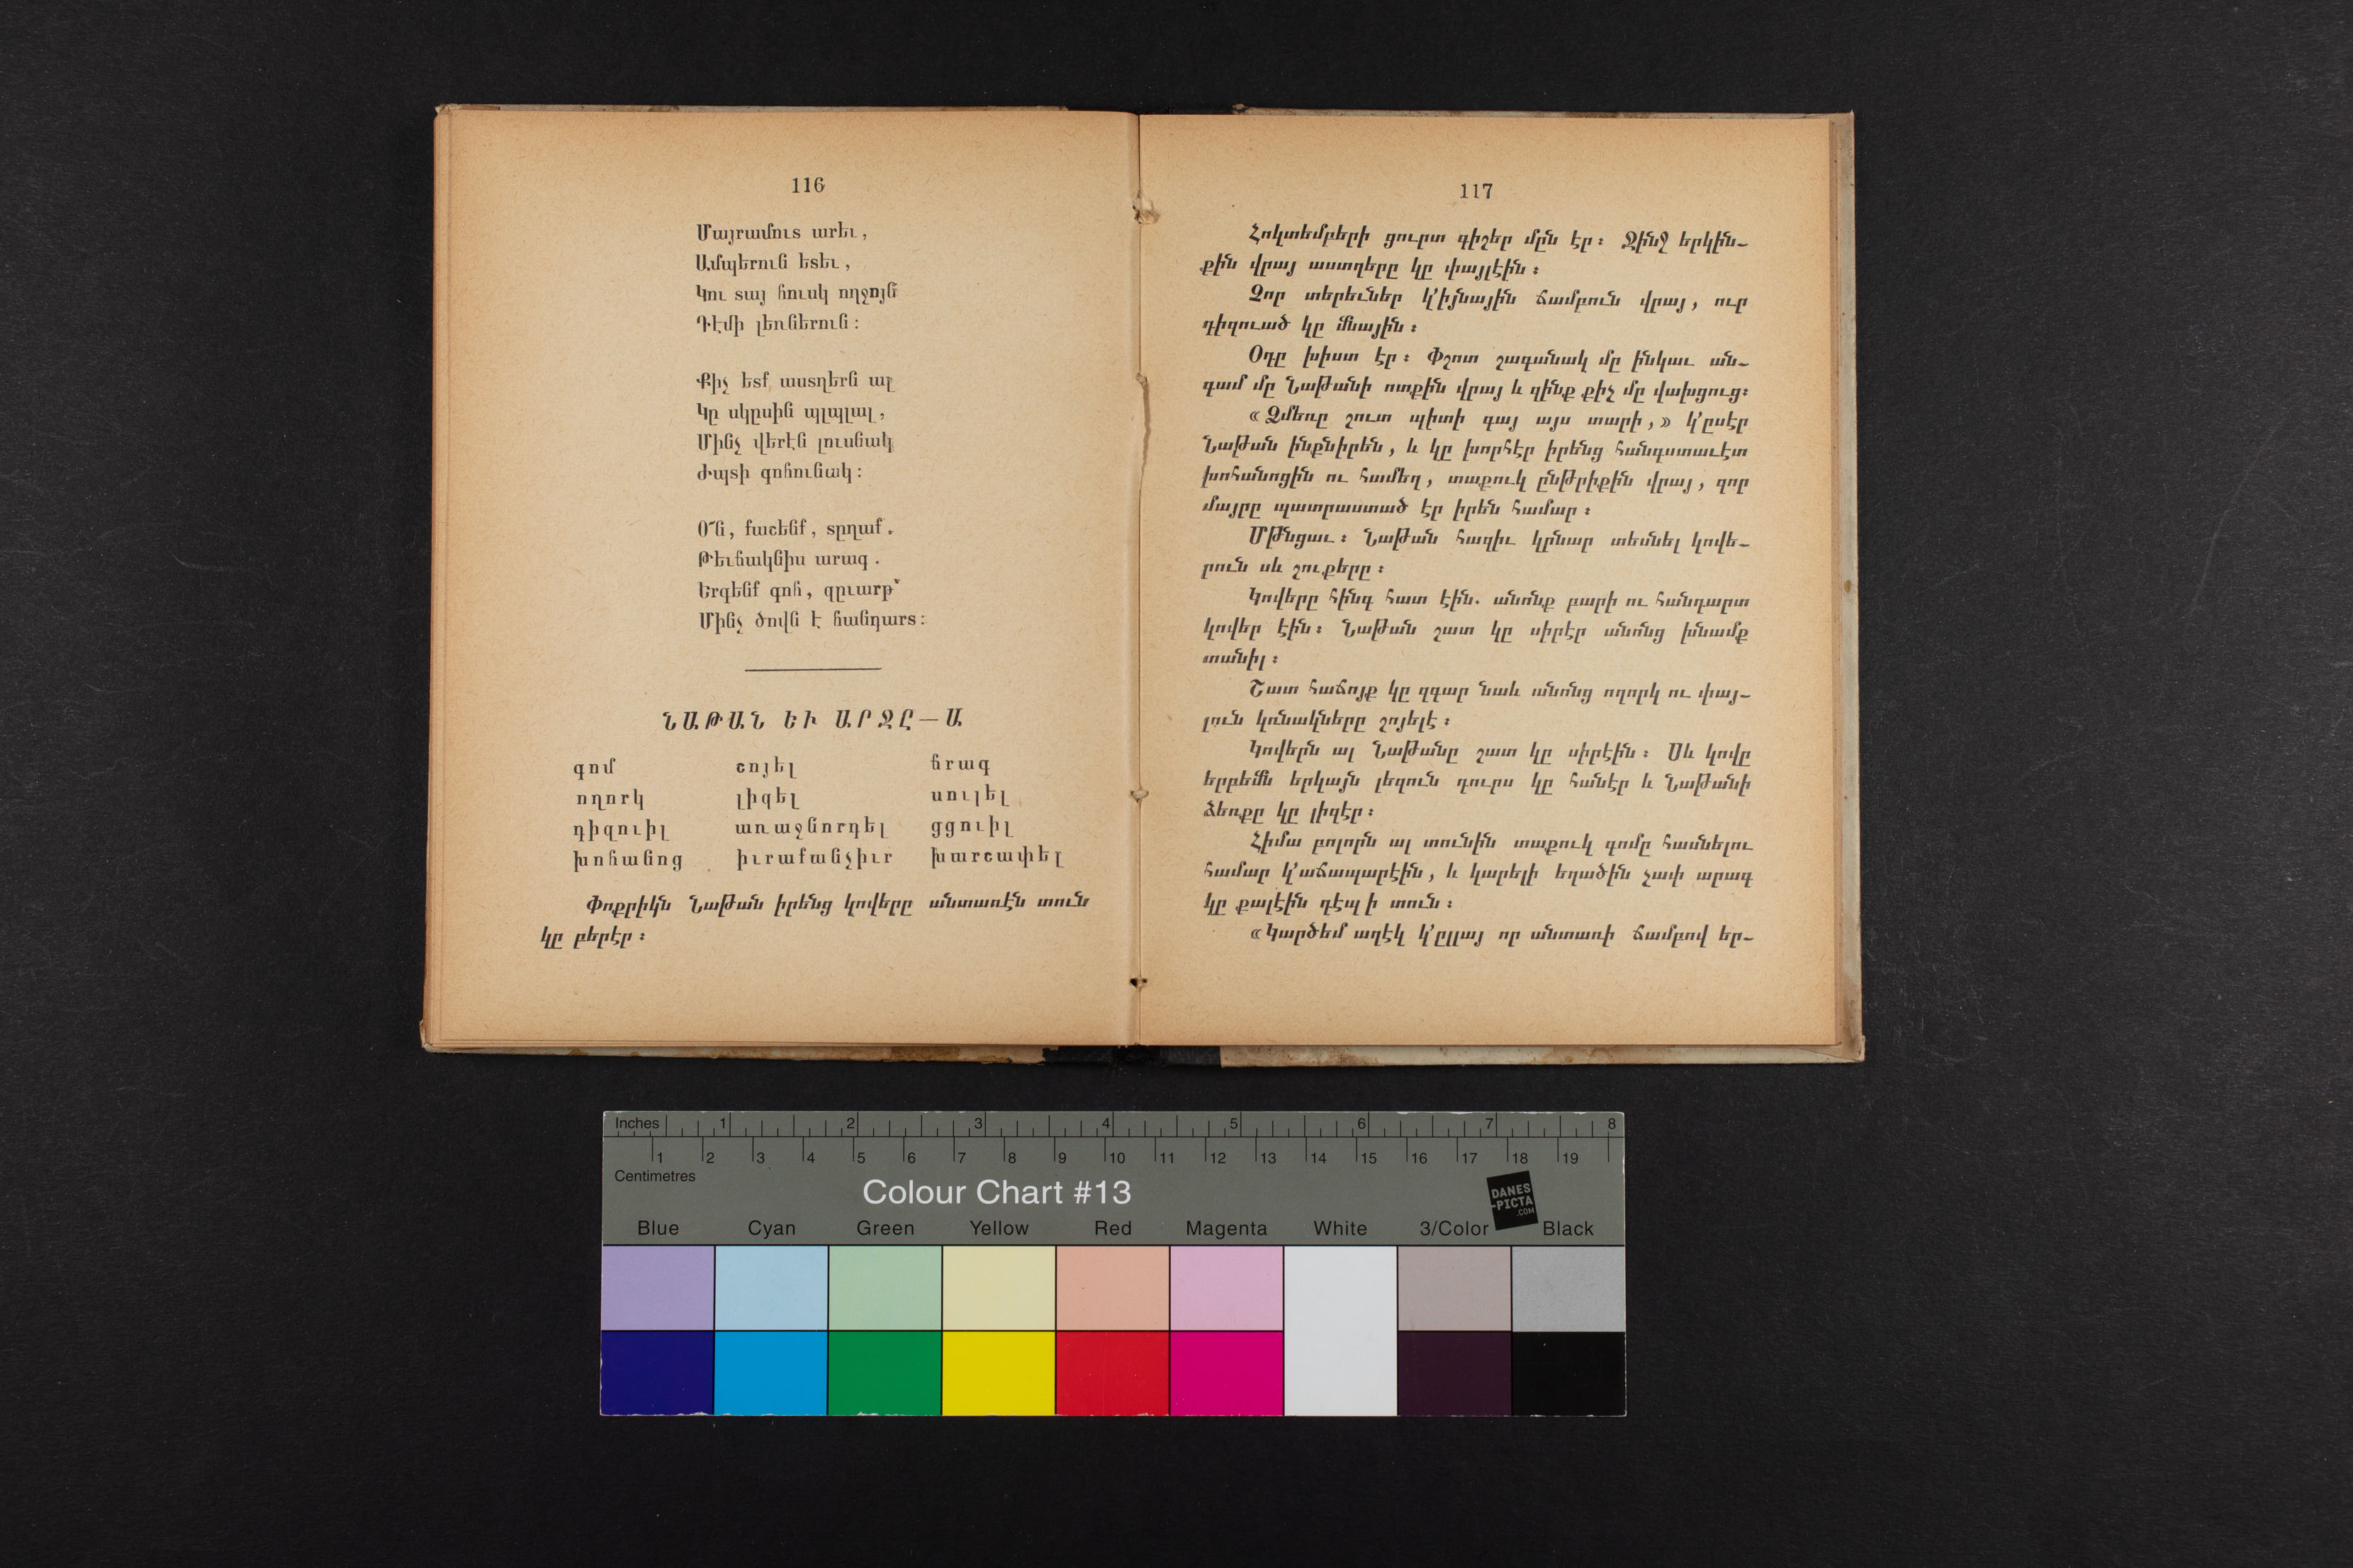 116
Մայրամուտ արեւ,
Ամպերուն ետեւ,
Կու տայ հուսկ ողջոյն
Դէմի լեռներուն։
Քիչ ետք աստղերն ալ
Կը սկըսին պլպլալ,
Մինչ վերէն լուսնակ
Ժպտի գոհունակ։
Օ՜ն, քաշենք, տըղաք.
Թեւնակնիս արագ.
Երգենք գոհ, զըւարթ՝
Մինչ ծովն է հանդարտ։
ՆԱԹԱՆ ԵՒ ԱՐՋԸ—Ա
գոմ շոյել ճրագ
ողորկ լիզել սուլել
դիզուիլ առաջնորդել ցցուիլ
խոհանոց իւրաքանչիւր խարշափել
Փոքրիկն Նաթան իրենց կովերը անտառէն տուն
կը բերէր։
117
Հոկտեմբերի ցուրտ գիշեր մըն էր։ Ջինջ երկին-
քին վրայ աստղերը կը փայլէին։
Չոր տերեւներ կ՚իյնային ճամբուն վրայ, ուր
դիզուած կը մնային։
Օդը խիստ էր։ Փշոտ շագանակ մը ինկաւ ան-
գամ մը Նաթանի ոտքին վրայ և զինք քիչ մը վախցուց։
«Ձմեռը շուտ պիտի գայ այս տարի,» կ՚ըսէր
Նաթան ինքնիրեն, և կը խորհէր իրենց հանգստաւէտ
խոհանոցին ու համեղ, տաքուկ ընթրիքին վրայ, զոր
մայրը պատրաստած էր իրեն համար։
Մթնցաւ։ Նաթան հազիւ կրնար տեսնել կովե-
րուն սև շուքերը։
Կովերը հինգ հատ էին. անոնք բարի ու հանդարտ
կովեր էին։ Նաթան շատ կը սիրէր անոնց խնամք
տանիլ։
Շատ հաճոյք կը զգար նաև անոնց ողորկ ու փայ-
լուն կռնակները շոյելէ։
Կովերն ալ Նաթանը շատ կը սիրէին։ Սև կովը
երբեմն երկայն լեզուն դուրս կը հանէր և Նաթանի
ձեռքը կը լիզէր։
Հիմա բոլորն ալ տունին տաքուկ գոմը հասնելու
համար կ՚աճապարէին, և կարելի եղածին չափ արագ
կը քալէին դէպ ի տուն։
«Կարծեմ աղէկ կ՚ըլլայ որ անտառի ճամբով եր-
Inches 1 2 3 4 5 6 7 8
1 2 3 4 5 6 7 8 9 10 11 12 13 14 15 16 17 18 19
Centimetres
Colour Chart #13
DANES
-PICTA
.COM
Blue Cyan Green Yellow Red Magenta White 3/Color Black